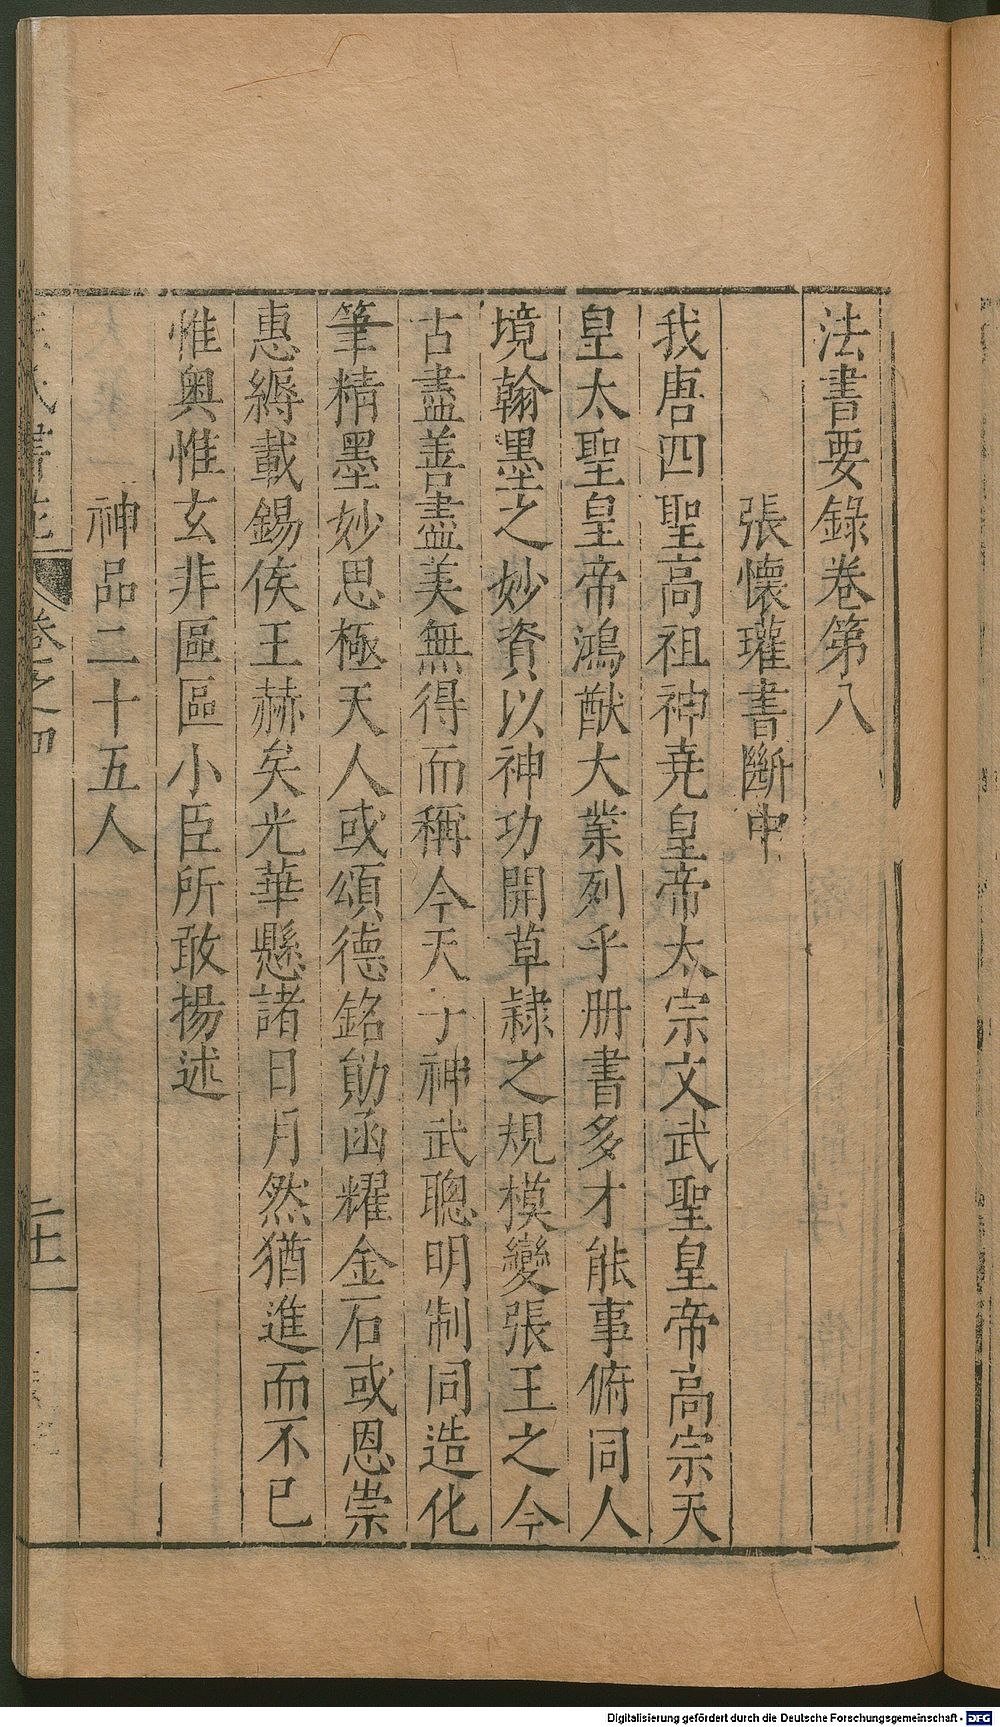 法書要錄卷第八
張懷瓘書斷中
我唐四聖高祖神堯皇帝太宗文武聖皇帝高宗天
皇太聖皇帝鴻猷大業列乎册書多才能事俯同人
境翰墨之妙資以神功開草隸之規模變張王之今
古盡善盡美無得而稱今天子神武聰明制同造化
筆精墨妙思極天人或頌德銘勛函耀金石或恩崇
惠縟載錫侯王赫矣光華懸諸日月然猶進而不已
惟奧惟玄非區區小臣所敢揚述
神品二十五人
卷之四
Digitalisierung gefördert durch die Deutsche Forschungsgemeinschaft - DFG